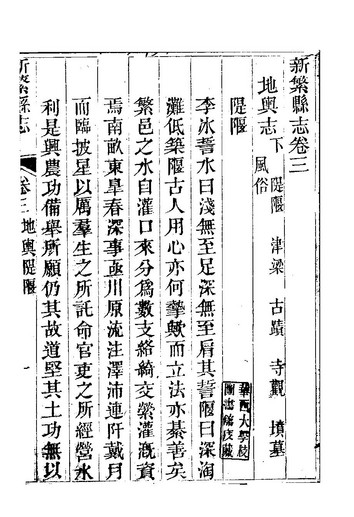 新繁縣志卷三
地輿志下 隄堰 津梁 古蹟 寺觀 墳墓
風俗
隄堰
李冰誓水曰淺無至足深無至肩其誓堰曰深淘
灘低築堰古人用心亦何摯歟而立法亦綦善矣
繁邑之水自灌口來分為數支絡綺交縈灌溉資
焉南畝東皐春深事亟川原流注澤沛連阡戴月
而臨披星以厲羣生之所託命官吏之所經營水
利是興農功備舉所願仍其故道堅其土功無以
新繁縣志
卷三 地輿隄堰
華西大學校
圖書館皮藏